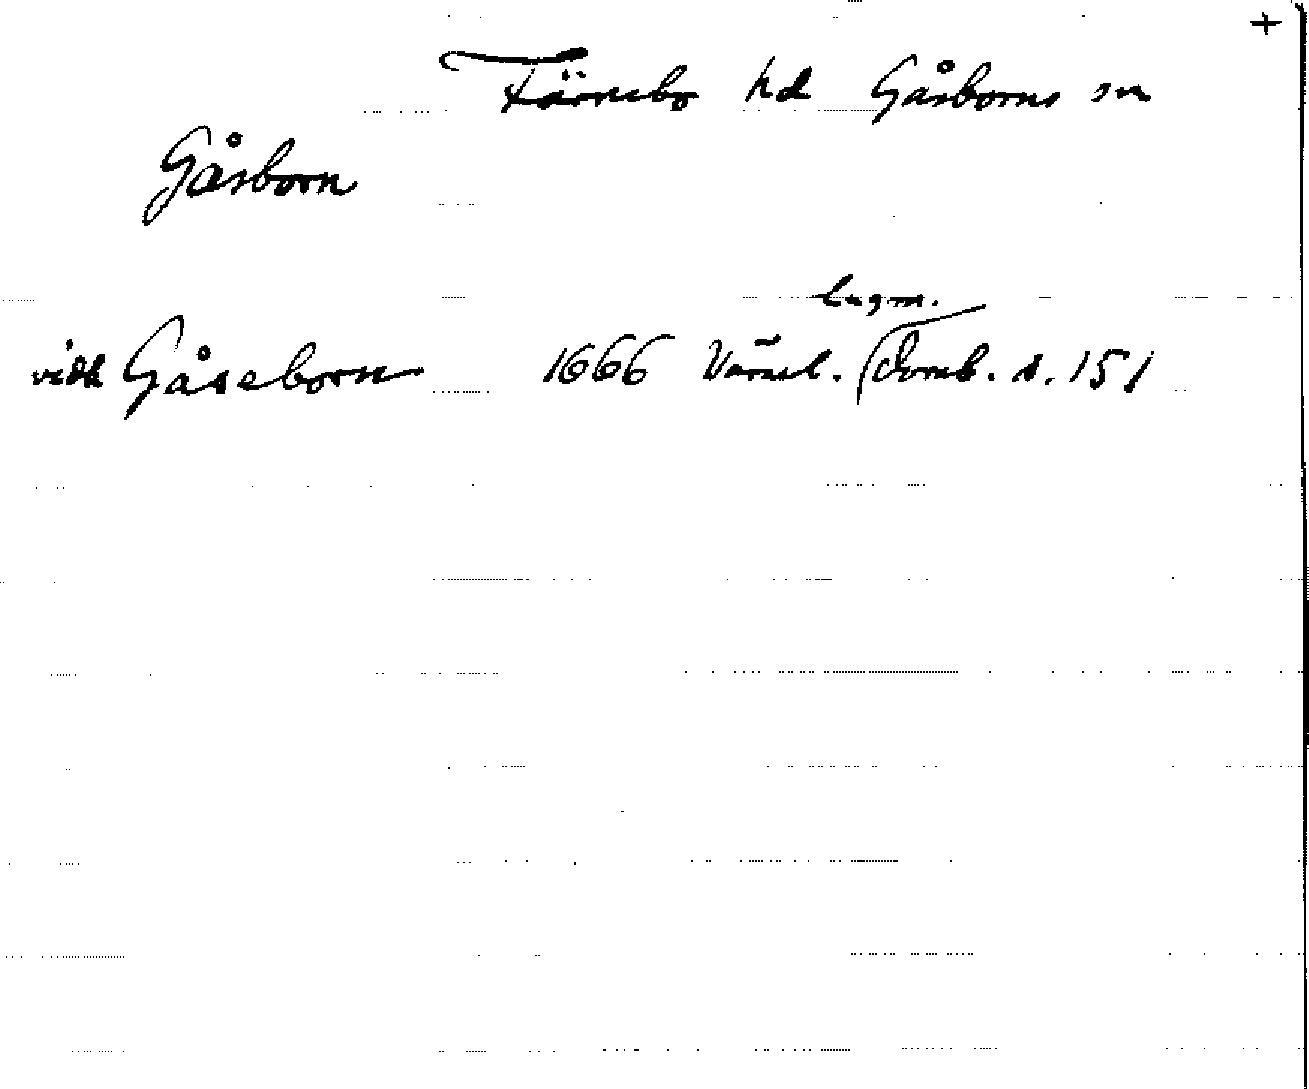 +
Färnebo hd Gåsborns sn
Gåsborn
lagm.
vidh Gåseborn 1666 Värml. Domb. s. 151